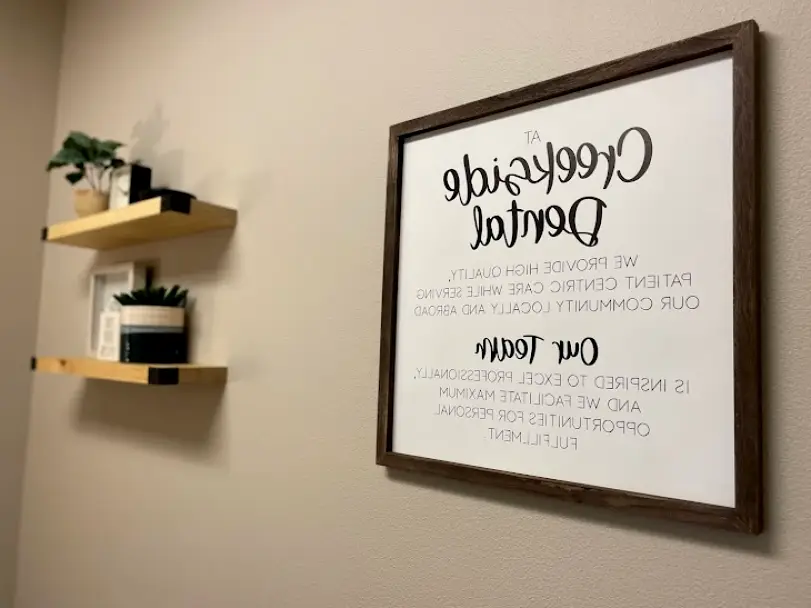 AT
Creekside
Dental
WE PROVIDE HIGH QUALITY,
PATIENT CENTRIC CARE WHILE SERVING
OUR COMMUNITY LOCALLY AND ABROAD
Our Team
IS INSPIRED TO EXCEL PROFESSIONALLY,
AND WE FACILITATE MAXIMUM
OPPORTUNITIES FOR PERSONAL
FULFILLMENT.